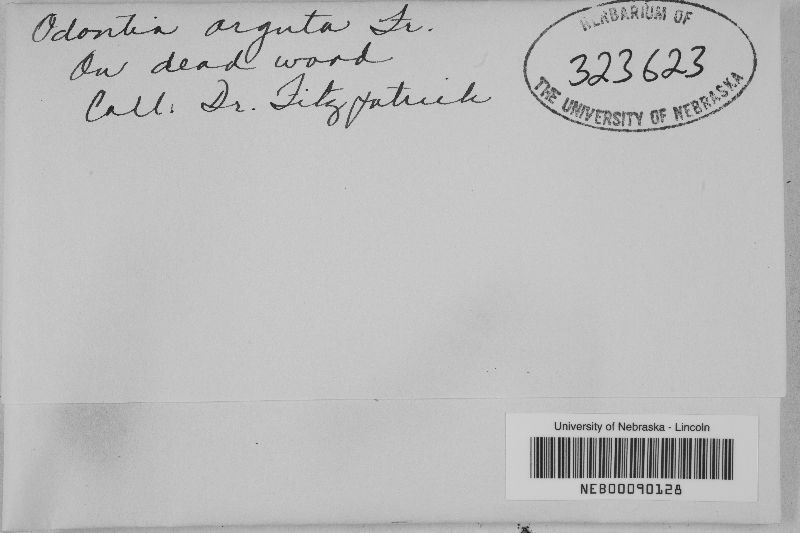 Odontia arguta Fr.
On dead wood
Coll. Dr. Fitzpatrick
HERBARIUM OF
323623
THE UNIVERSITY OF NEBRASKA
University of Nebraska - Lincoln
NEB00090128